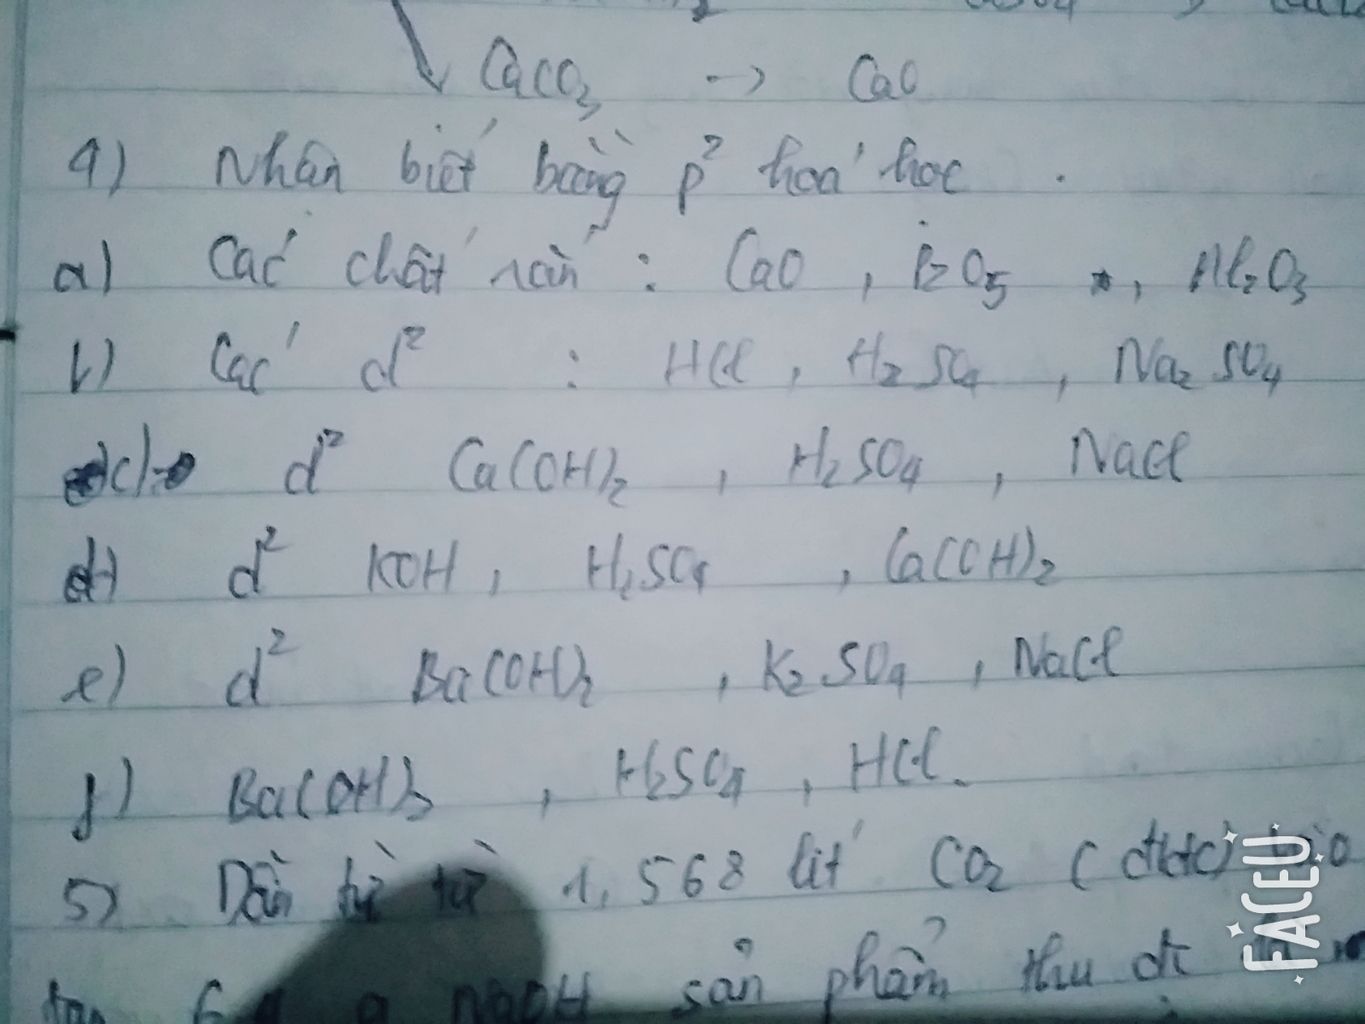 CaCO₃ -> CaO
4) Nhận biết bằng p² hoá học.
a) Các chất rắn : CaO, P₂O₅, Al₂O₃
b) Các d² : HCl, H₂SO₄, Na₂SO₄
c) d² Ca(OH)₂, H₂SO₄, NaCl
d) d² KOH, H₂SO₄, Ca(OH)₂
e) d² Ba(OH)₂, K₂SO₄, NaCl
f) Ba(OH)₂, H₂SO₄, HCl.
5) Dẫn từ từ 1,568 lít CO₂ (đktc) vào
NaOH sản phẩm thu đc
FACEU